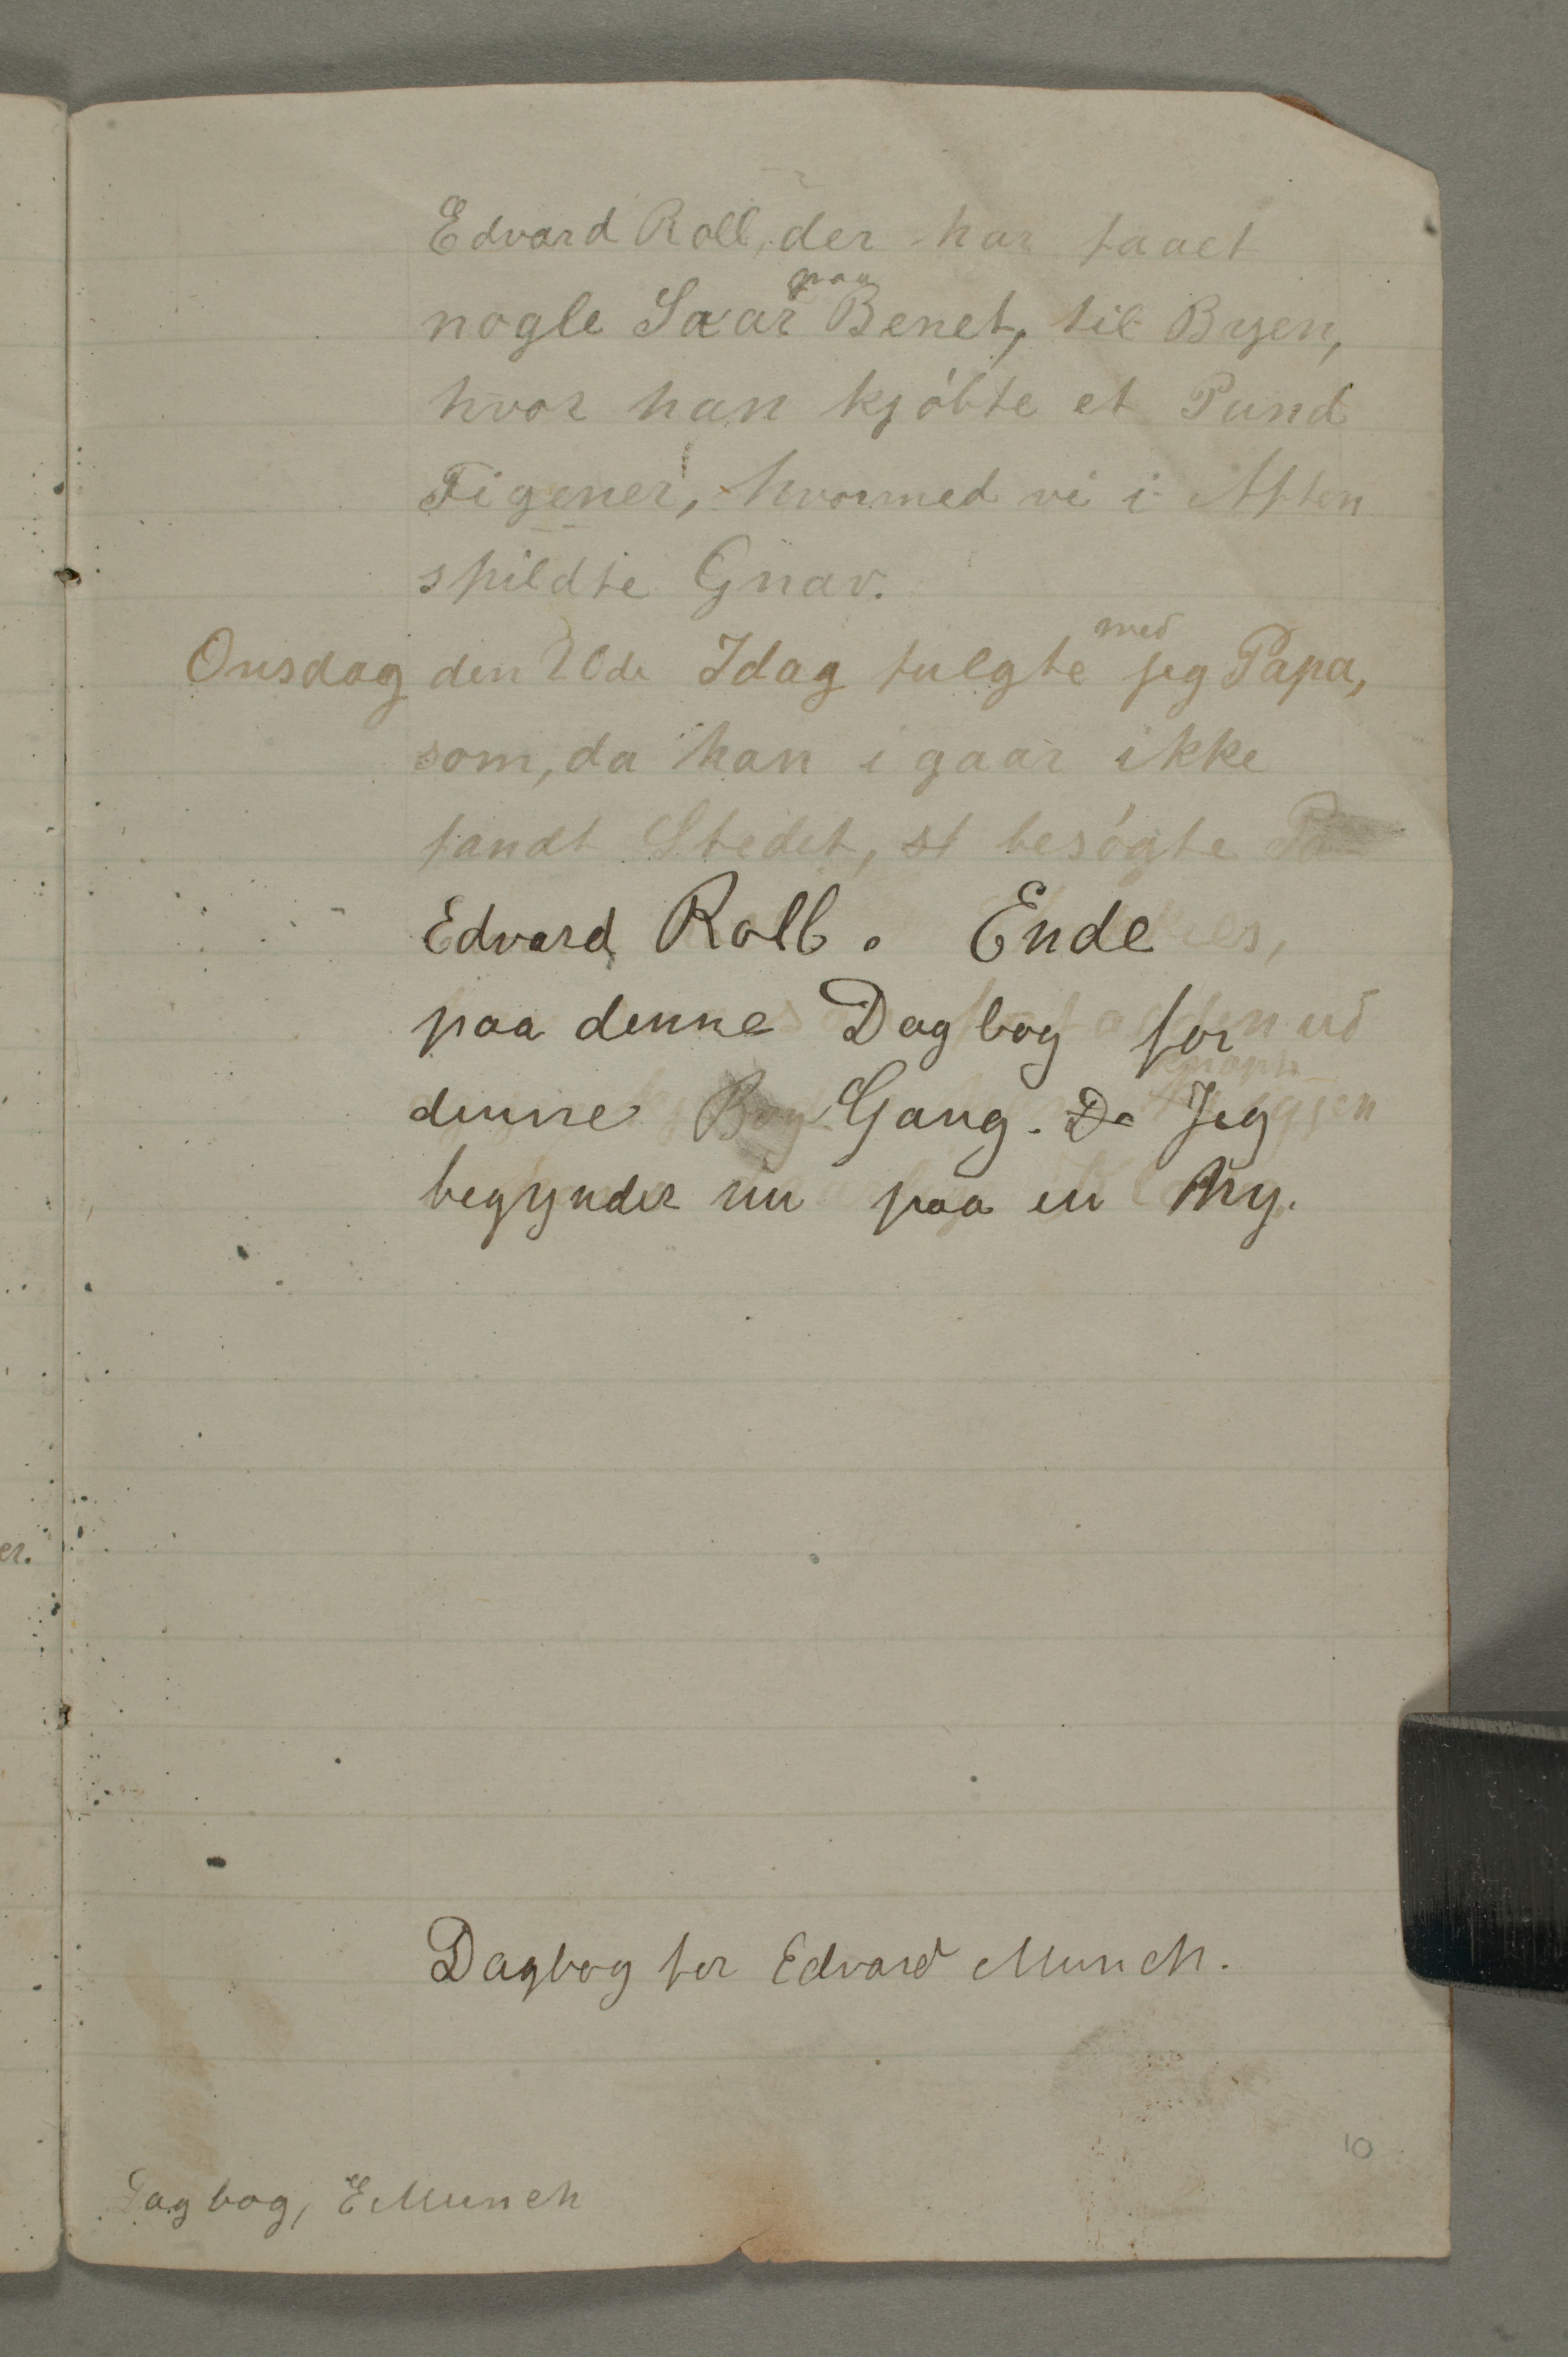 Edvard Roll, der har faaet
nogle Saar paa Benet, til Byen,
hvor han kjóbte et Pund
Figener, hvormed vi i Aften
spildte Gnav.
Onsdag den 20de Idag fulgte jeg med Papa,
som, da han igaar ikke
fandt Stedet, besógte
Edvard Roll. Ende
paa denne Dagbog for
denne Gang. Da Jeg
begynder nu paa en Ny.
Dagbog for Edvard Munch.
10
Dagbog, E Munch